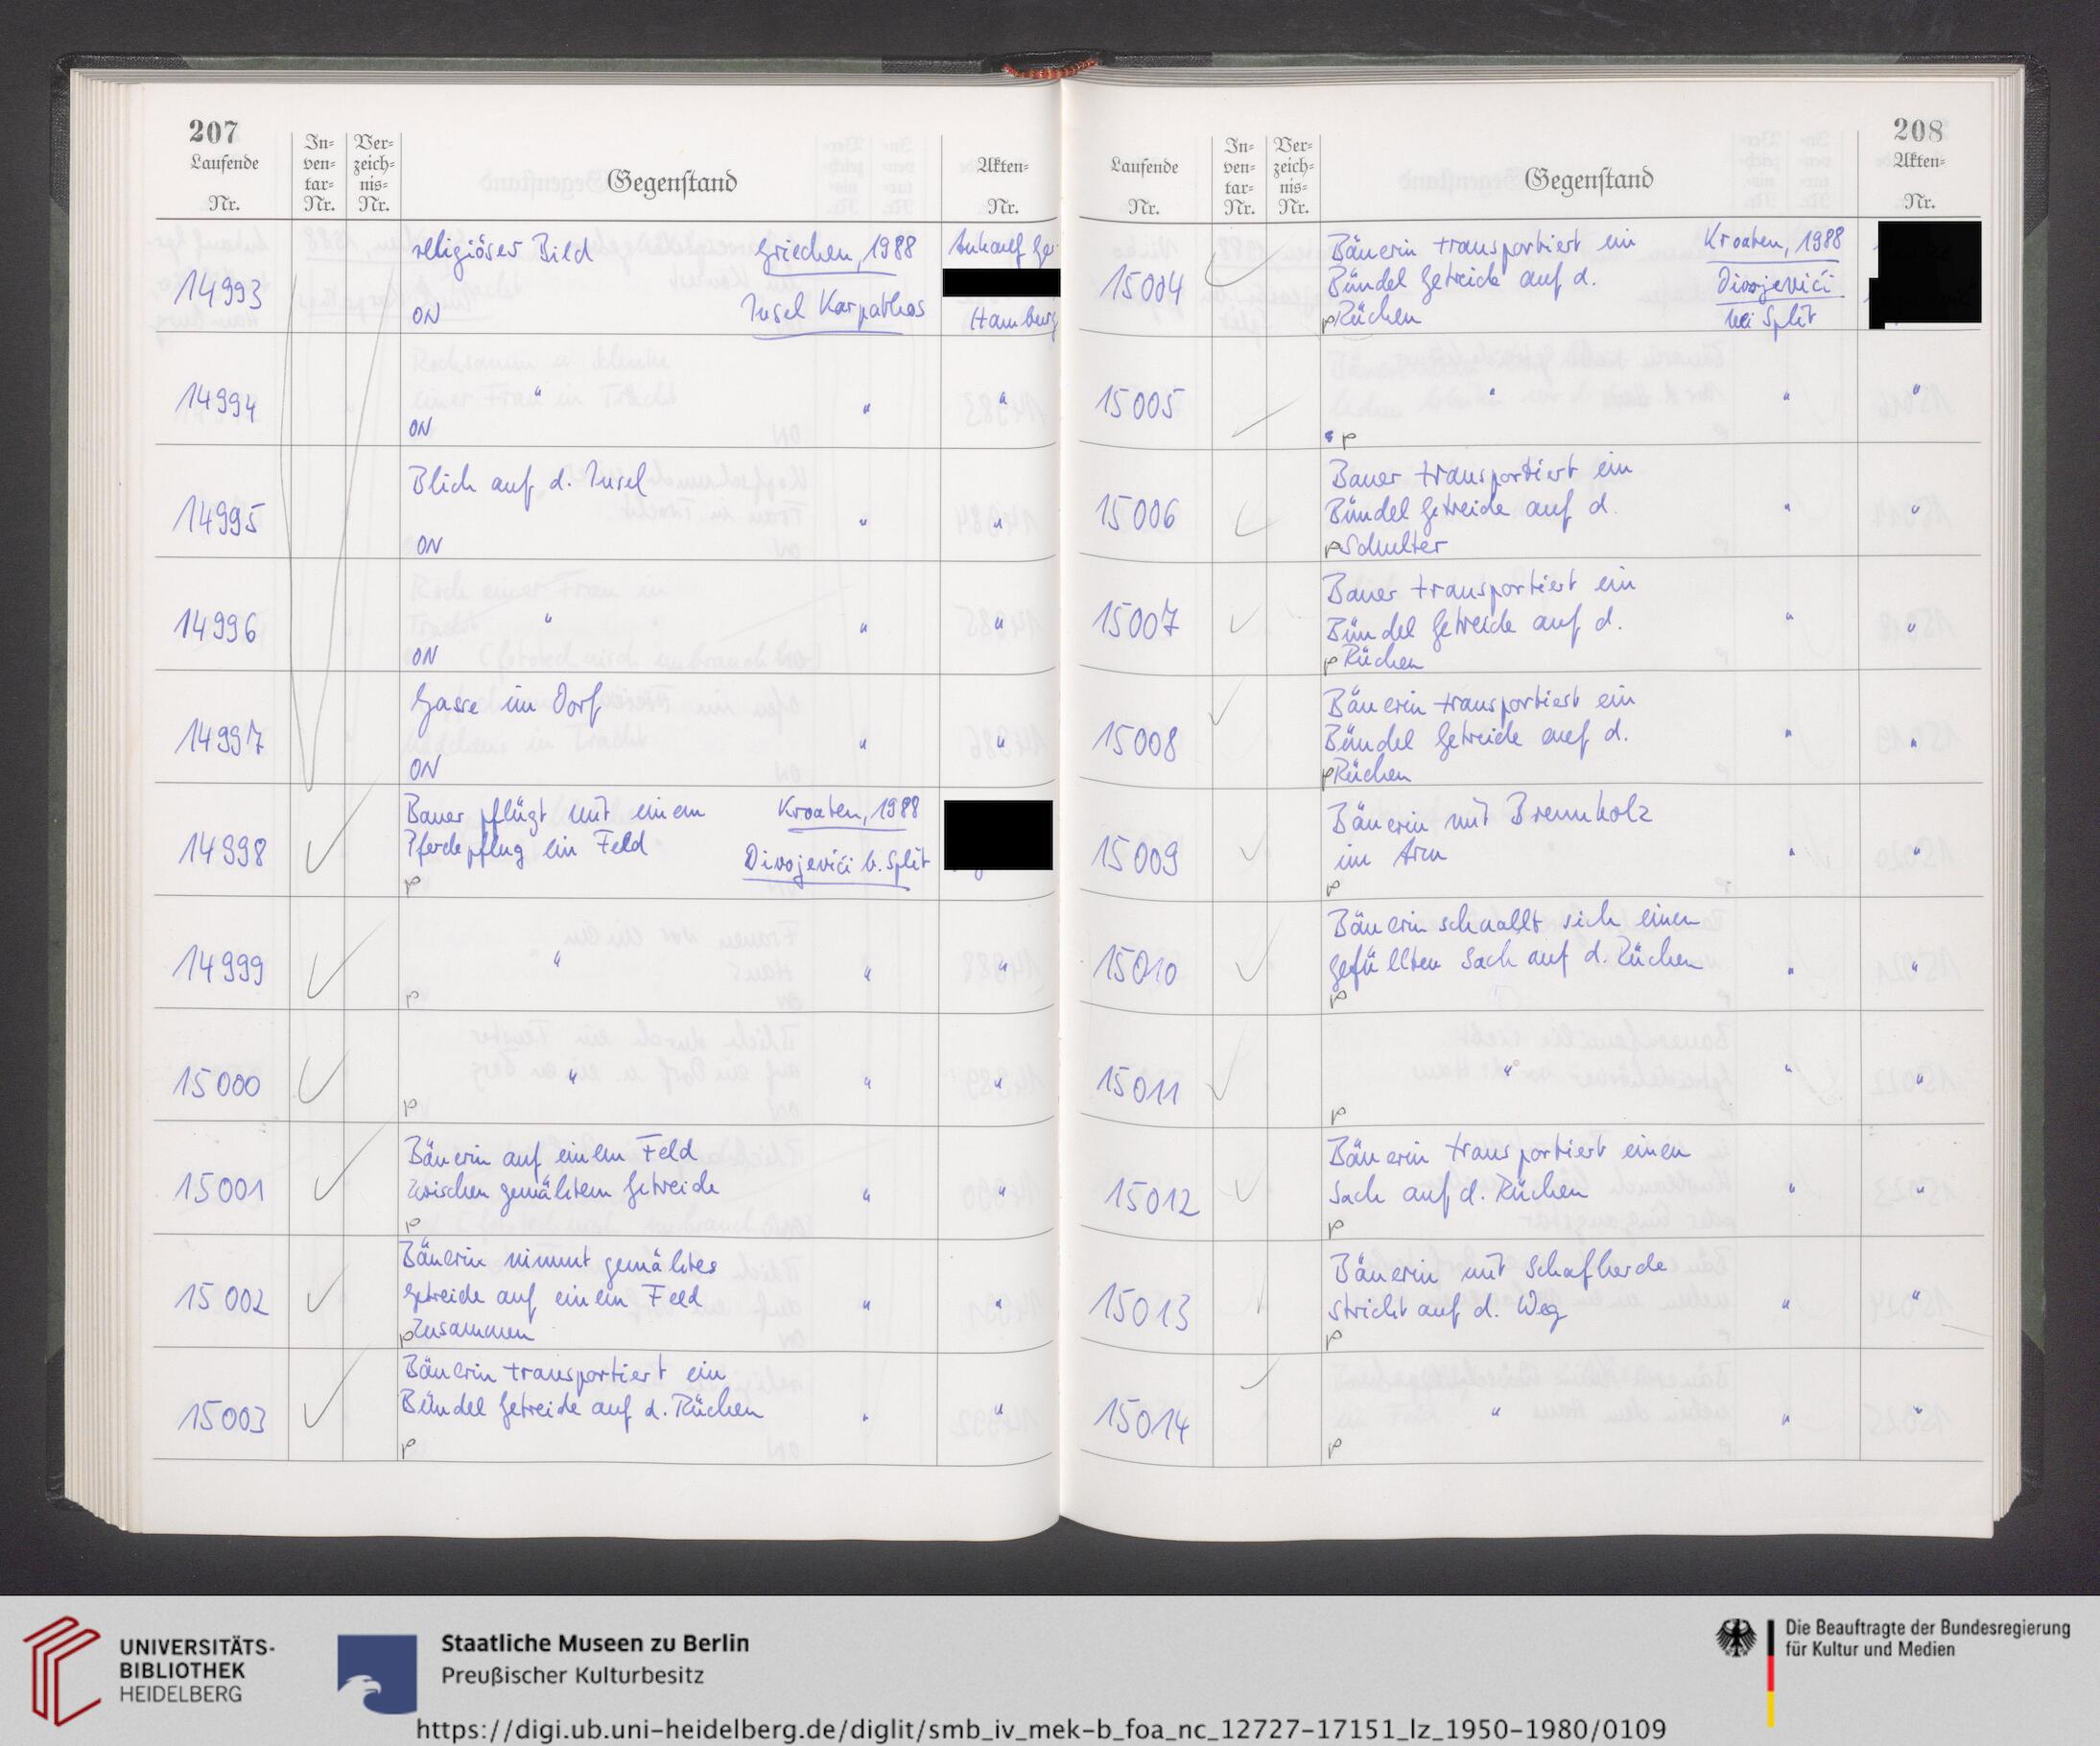 207
Laufende
Nr.
In-
ven-
tar-
Nr.
Ver-
zeich-
nis-
Nr.
Gegenstand
Akten-
Nr.
14993
religiöses Bild
Griechen, 1988
Ankauf
ON
Insel Karpathos
Hamburg
14994
"
"
"
ON
14995
Blick auf d. Insel
"
"
ON
14996
"
"
"
ON
14997
Gasse im Dorf
"
"
ON
14998
Bauer pflügt mit einem
Kroaten, 1988
Pferdepflug ein Feld
Divojevići b. Split
P
14999
"
"
"
P
15000
"
"
"
P
15001
Bäuerin auf einem Feld
zwischen gemähtem Getreide
"
"
P
15002
Bäuerin nimmt gemähtes
Getreide auf einem Feld
"
"
P zusammen
15003
Bäuerin transportiert ein
Bündel Getreide auf d. Rücken
"
"
P
208
Laufende
Nr.
In-
ven-
tar-
Nr.
Ver-
zeich-
nis-
Nr.
Gegenstand
Akten-
Nr.
15004
Bäuerin transportiert ein
Kroaten, 1988
Bündel Getreide auf d.
Divojevići
P Rücken
bei Split
15005
"
"
"
P
15006
Bauer transportiert ein
Bündel Getreide auf d.
"
"
P Schulter
15007
Bauer transportiert ein
Bündel Getreide auf d.
"
"
P Rücken
15008
Bäuerin transportiert ein
Bündel Getreide auf d.
"
"
P Rücken
15009
Bäuerin mit Brennholz
im Arm
"
"
P
15010
Bäuerin schnallt sich einen
gefüllten Sack auf d. Rücken
"
"
P
15011
"
"
"
P
15012
Bäuerin transportiert einen
Sack auf d. Rücken
"
"
P
15013
Bäuerin mit Schafherde
strickt auf d. Weg
"
"
P
15014
"
"
"
P
UNIVERSITÄTS-
BIBLIOTHEK
HEIDELBERG
Staatliche Museen zu Berlin
Preußischer Kulturbesitz
Die Beauftragte der Bundesregierung
für Kultur und Medien
https://digi.ub.uni-heidelberg.de/diglit/smb_iv_mek-b_foa_nc_12727-17151_lz_1950-1980/0109